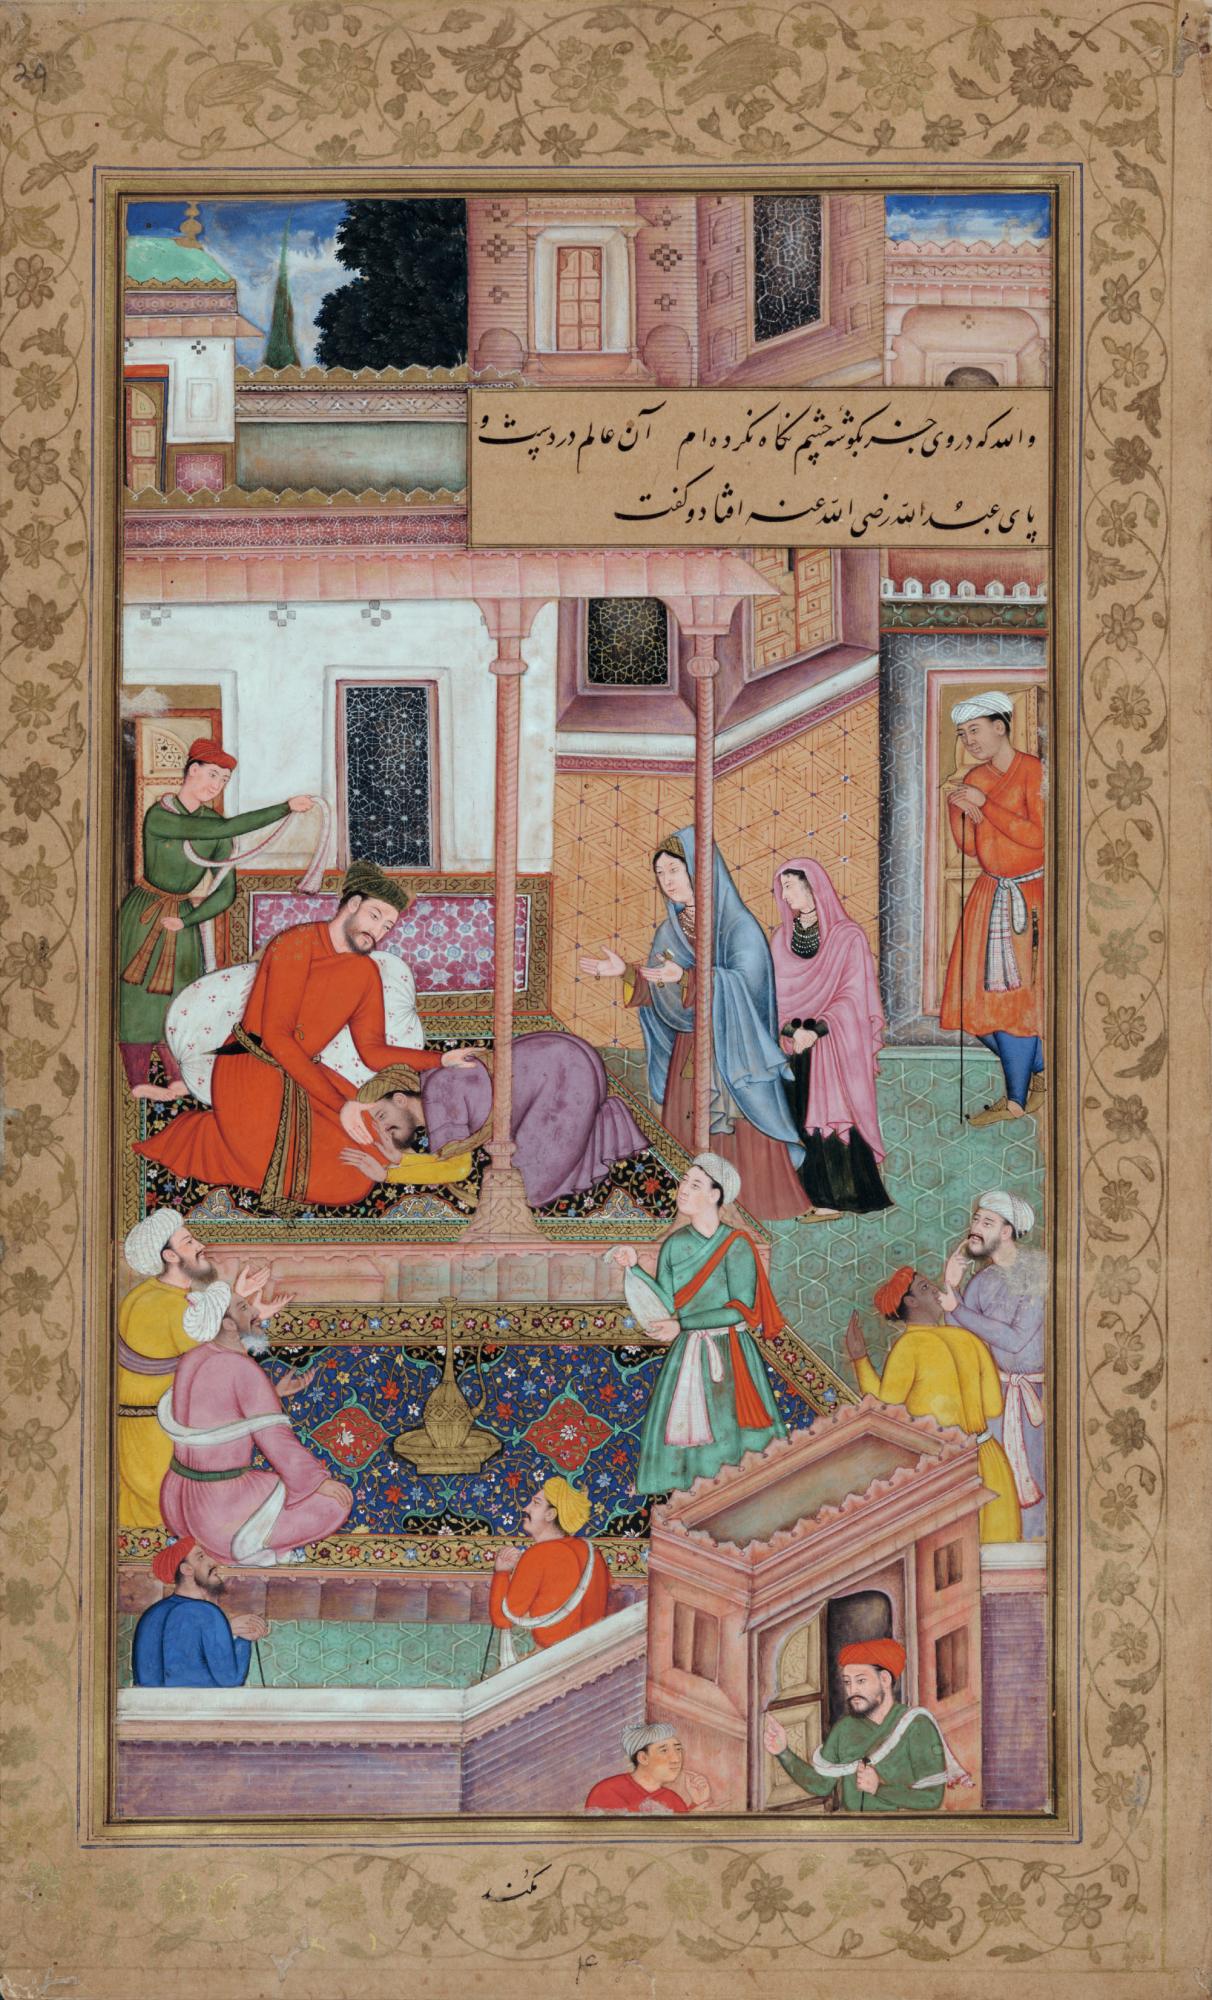 29
والله که در وی جز بگوشه چشم نگاه نکرده ام آن عالم در دست و
پای عبد الله رضی الله عنه افتاد و گفت
مکند